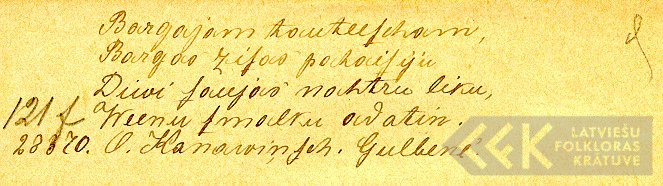 Bargajam tauteescham,
Bargas zisas pataisiju
Diwi saujas nahtru liku,
121 f Weenu smalku adatin.
28870. O. Kanawiņsch. Gulbenē
LATVIEŠU
FOLKLORAS
KRĀTUVE